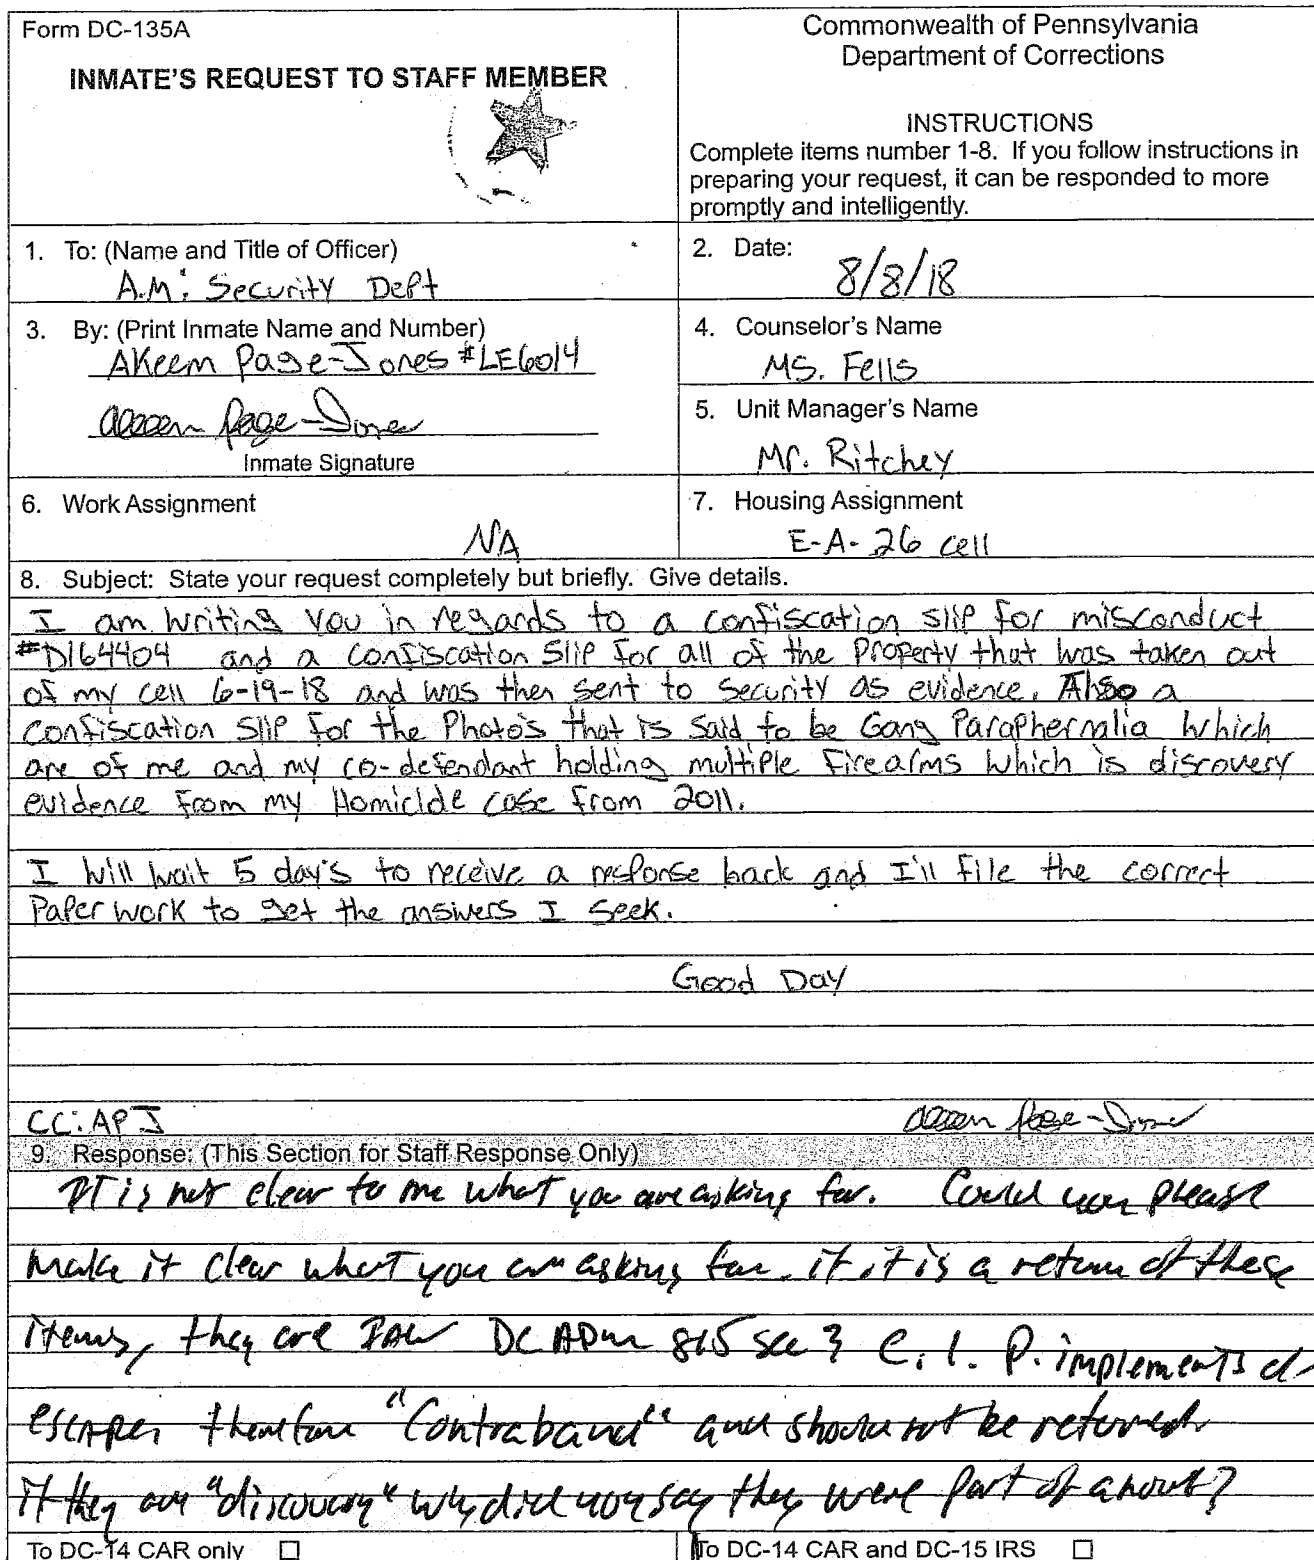 Form DC-135A
INMATE'S REQUEST TO STAFF MEMBER
Commonwealth of Pennsylvania
Department of Corrections
INSTRUCTIONS
Complete items number 1-8. If you follow instructions in
preparing your request, it can be responded to more
promptly and intelligently.
1. To: (Name and Title of Officer)
A.M: Security Dept
2. Date:
8/8/18
3. By: (Print Inmate Name and Number)
AKeem Page-Jones #LE6014
Page-Jones
Inmate Signature
4. Counselor's Name
MS. Fells
5. Unit Manager's Name
Mr. Ritchey
6. Work Assignment
NA
7. Housing Assignment
E-A-26 cell
8. Subject: State your request completely but briefly. Give details.
I am writing you in regards to a confiscation slip for misconduct
#D164404 and a confiscation slip for all of the Property that was taken out
of my cell 6-19-18 and was then sent to security as evidence. Also a
confiscation slip for the Photo's that is said to be Gang Paraphernalia which
are of me and my co-defendant holding multiple Firearms which is discovery
evidence from my Homicide case from 2011.
I will wait 5 day's to receive a response back and I'll file the correct
Paper work to get the answers I seek.
Good Day
CC: APJ
Page-Jones
9. Response: (This Section for Staff Response Only)
It is not clear to me what you are asking for. Could you please
make it clear what you are asking for. if it is a return of these
items, they are IAW DC ADM 815 sec 3 C. 1. P. implements of
escape, therefore "Contraband" and should not be returned.
if they are "discovery" why did you say they were part of a?
To DC-14 CAR only ☐
To DC-14 CAR and DC-15 IRS ☐